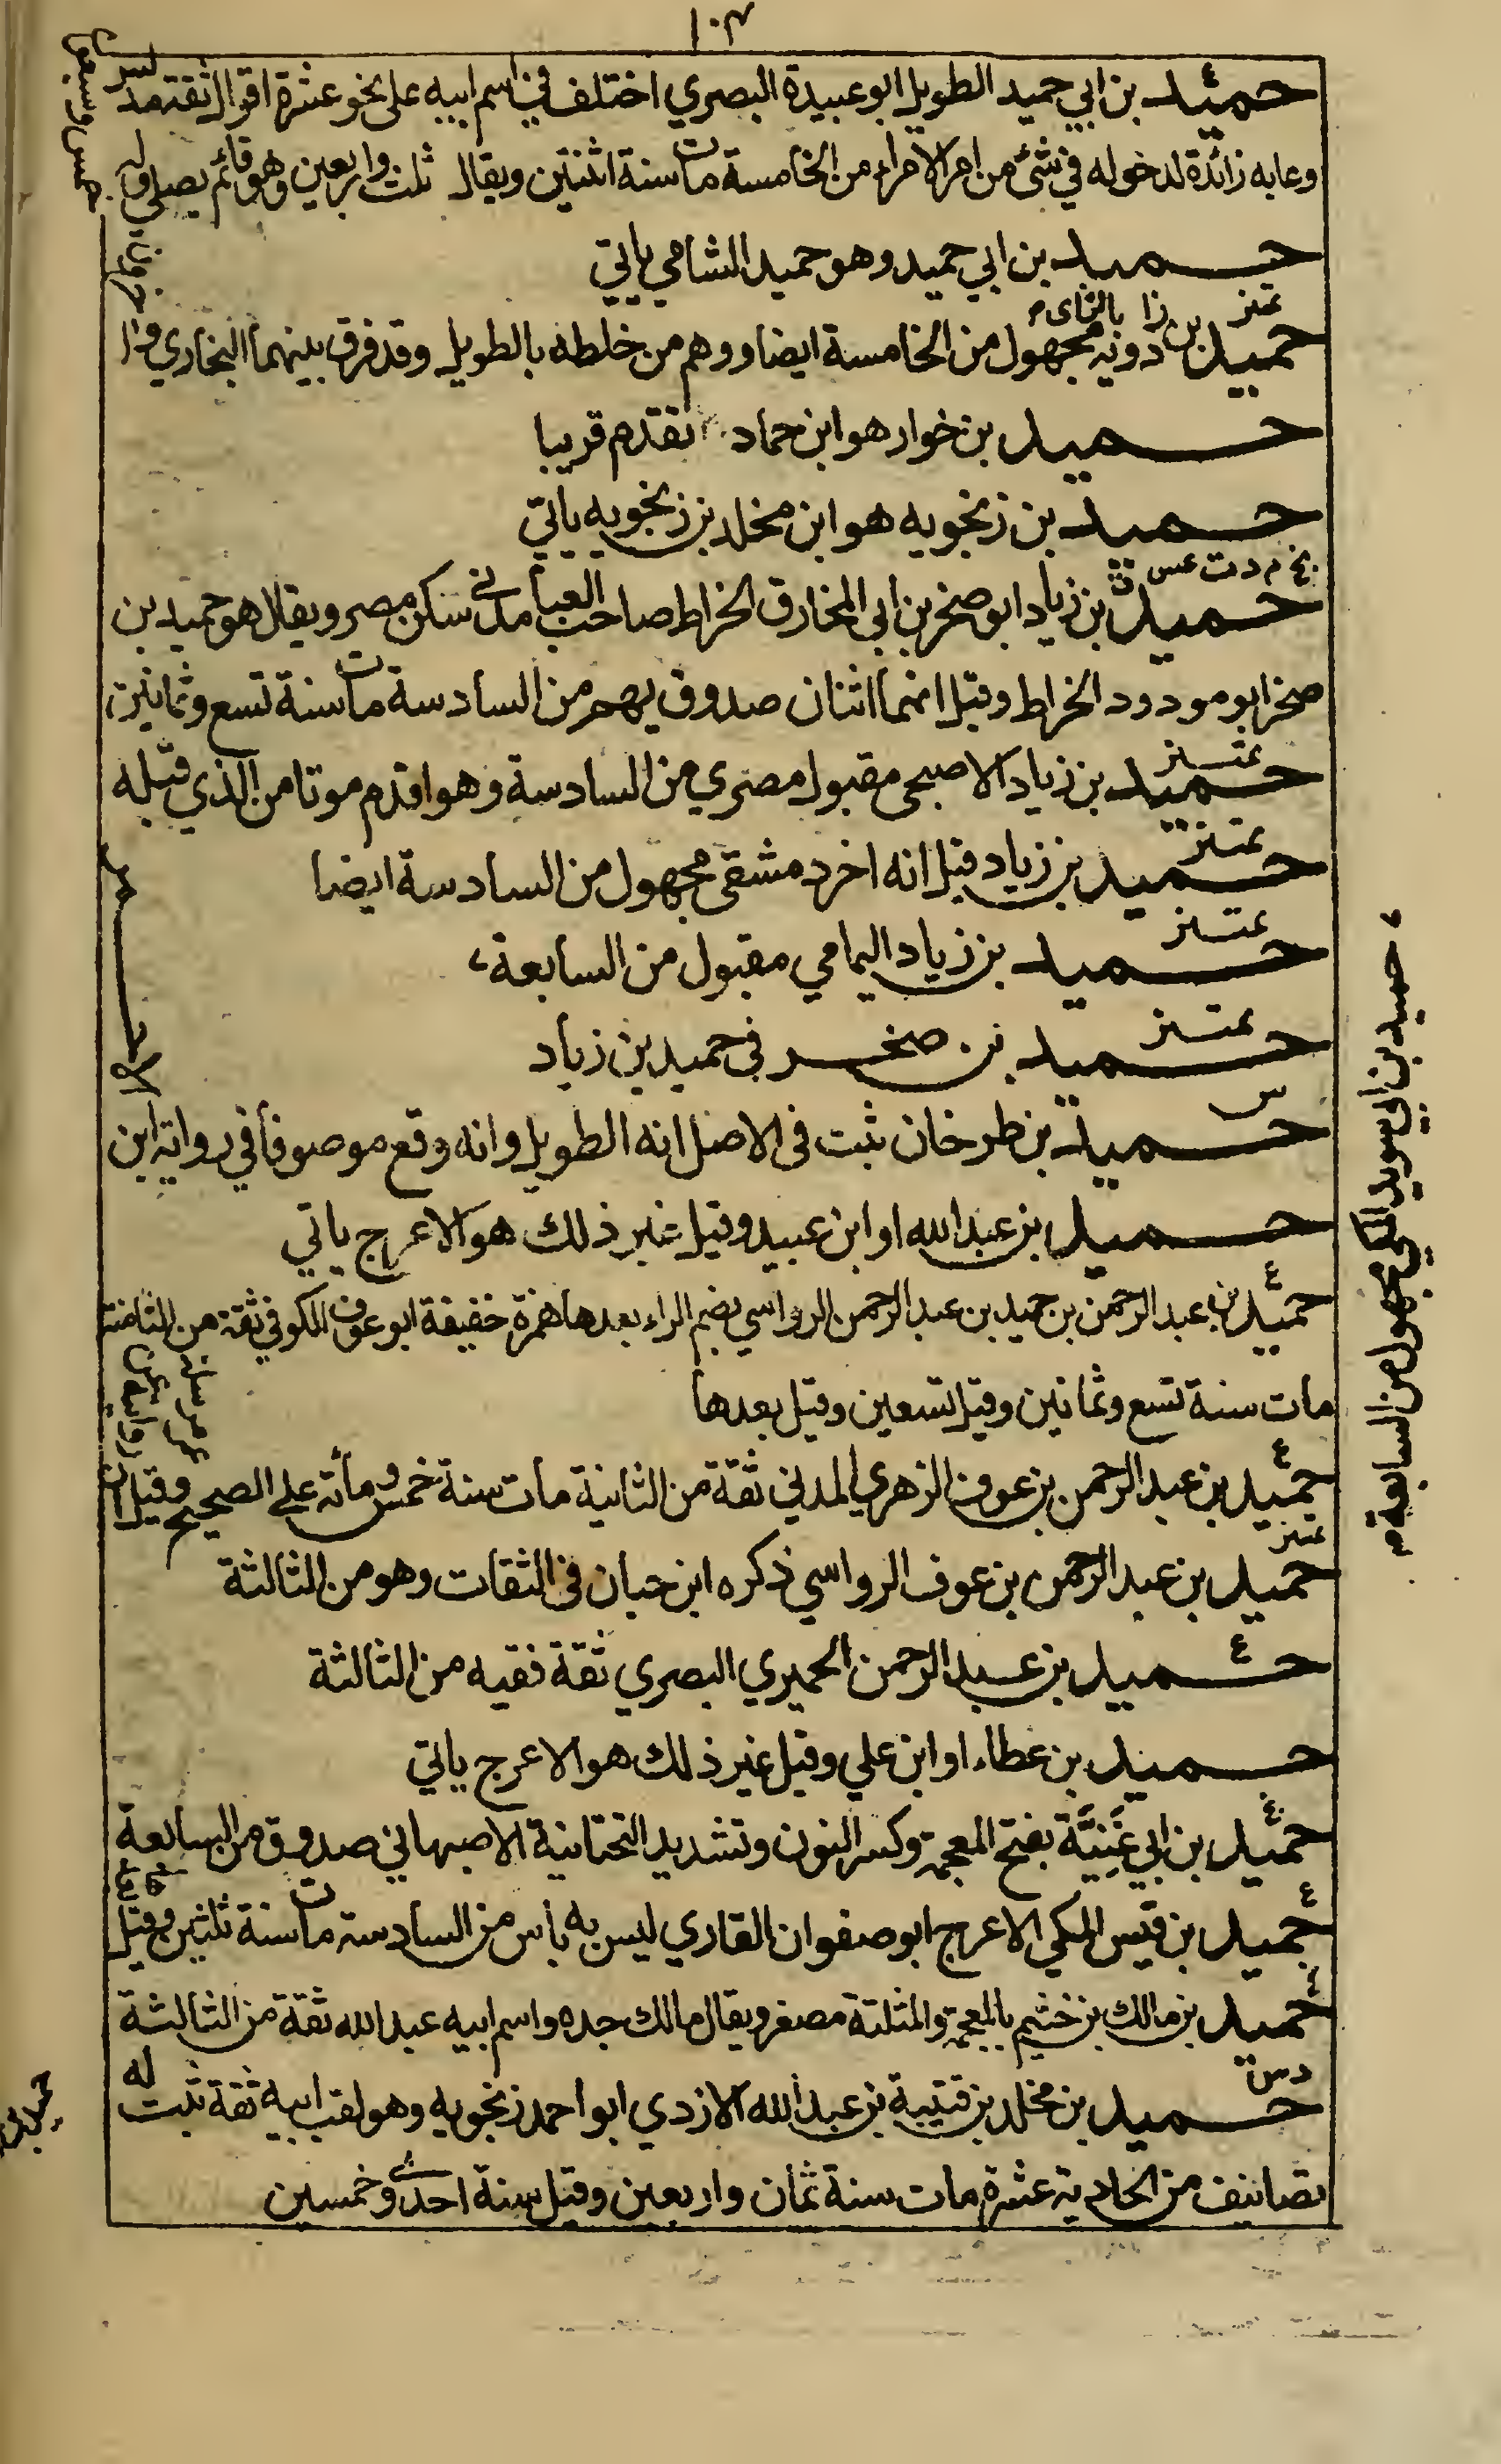 ١٠٣
حميد بن ابي حميد الطويل ابو عبيدة البصري اختلف في اسم ابيه على نحو عشرة اقوال ثقة مدلس
وعابه زائدة لدخوله في شئ من امر الامراء من الخامسة مات سنة اثنتين ويقال ثلث واربعين وهو قائم يصلي وله
خمس وسبعون
حميد بن ابي حميد وهو حميد الشامي ياتي
تمييز
حميد بن زادويه بالزاي مجهول من الخامسة ايضا ووهم من خلطه بالطويل وقد فرق بينهما البخاري
حميد بن خوار هو ابن حماد تقدم قريبا
حميد بن زنجويه هو ابن مخلد بن زنجويه ياتي
بخ م د ت عس ق
حميد بن زياد ابو صخر بن ابي المخارق الخراط صاحب العبا مدني سكن مصر ويقال هو حميد بن
صخر ابو مودود الخراط وقيل انهما اثنان صدوق يهم من السادسة مات سنة تسع وثمانين
تمييز
حميد بن زياد الاصبحي مقبول مصري من السادسة وهو اقدم موتا من الذي قبله
تمييز
حميد بن زياد قيل انه اخر دمشقي مجهول من السادسة ايضا
تمييز
حميد بن زياد اليمامي مقبول من السابعة
تمييز
حميد بن صخر في حميد بن زياد
س
حميد بن طرخان ثبت في الاصل انه الطويل وانه وقع موصوفا في رواية ابن
الاحمر
حميد بن عبد الله او ابن عبيد وقيل غير ذلك هو الاعرج ياتي
ع
حميد بن عبد الرحمن بن حميد بن عبد الرحمن الرواسي بضم الراء بعدها همزة خفيفة ابو عوف الكوفي ثقة من الثامنة
مات سنة تسع وثمانين وقيل تسعين وقيل بعدها
ع
حميد بن عبد الرحمن بن عوف الزهري المدني ثقة من الثانية مات سنة خمس ومائة على الصحيح وقيل ان
روايته عن عمر مرسلة
تمييز
حميد بن عبد الرحمن بن عوف الرواسي ذكره ابن حبان في الثقات وهو من الثالثة
ع
حميد بن عبد الرحمن الحميري البصري ثقة فقيه من الثالثة
حميد بن عطاء او ابن علي وقيل غير ذلك هو الاعرج ياتي
حميد بن ابي غَنِيَّة بفتح المعجمة وكسر النون وتشديد التحتانية الاصبهاني صدوق من السابعة
ع
حميد بن قيس المكي الاعرج ابو صفوان القاري ليس به بأس من السادسة مات سنة ثلثين وقيل
بعدها
حميد بن مالك بن خثيم بالمعجمة والمثلثة مصغر ويقال مالك جده واسم ابيه عبد الله ثقة من الثالثة
د س
حميد بن مخلد بن قتيبة بن عبد الله الازدي ابو احمد زنجويه وهو لقب ابيه ثقة ثبت له
تصانيف من الحادية عشرة مات سنة ثمان واربعين وقيل سنة احدى وخمسين
حميد بن ابي سويد المكي مجهول من السابعة